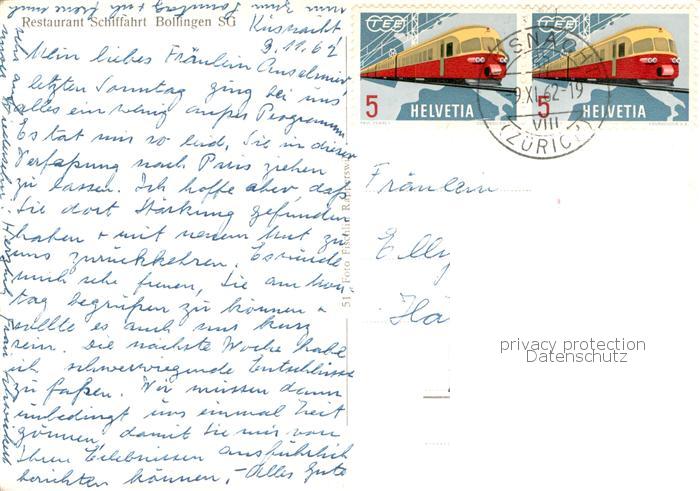 Restaurant Schiffahrt Bollingen SG
Küsnacht
9.11.62
Mein liebes Fräulein
letzten Sonntag ging bei uns
alles ein wenig außer Programm
Es tat mir so leid, Sie in dieser
Verfaßung nach Paris ziehen
zu lassen. Ich hoffe aber, daß
Sie dort Stärkung gefunden
haben + mit neuem Mut zu
uns zurückkehren. Es würde
mich sehr freuen, Sie am
tag begrüßen zu können +
sollte es auch nur kurz
sein. Die nächste Woche habe
ich schwerwiegende Entschlüsse
zu faßen. Wir müssen dann
unbedingt uns einmal Zeit
gönnen, damit Sie mir von
Ihren Erlebnissen ausführlich
berichten können, - Alles Gute
51 Foto Fischlin
TEE
5
HELVETIA
TEE
5
HELVETIA
9.XI.62-19
VIII
(ZÜRICH)
Fräulein
Elly
Hä
privacy protection
Datenschutz